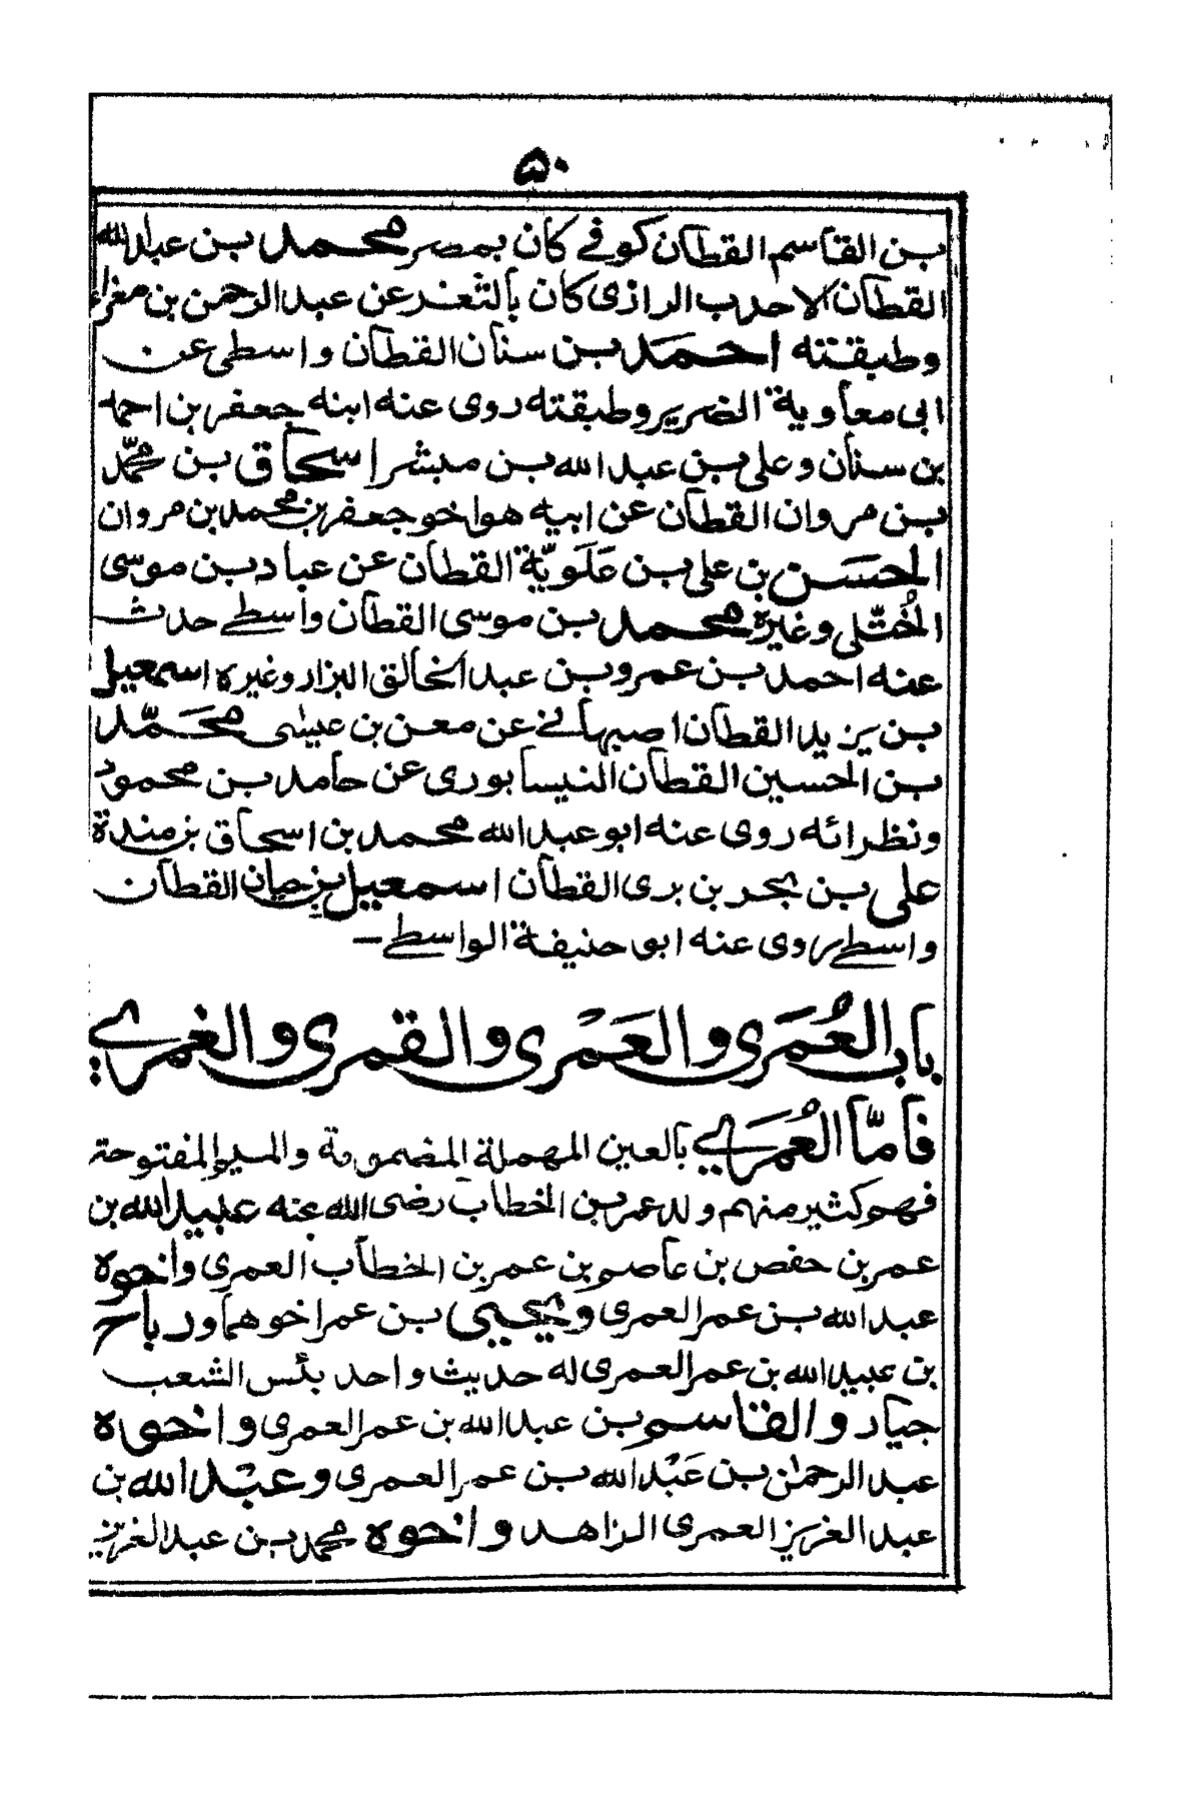 ۵۰
بن القاسم القطان كوفي كان بمصر محمد بن عبد الله
القطان الاحدب الرازى كان بالثغر عن عبد الرحمن بن مغراء
وطبقته احمد بن سنان القطان واسطى عن
ابى معاوية الضرير وطبقته روى عنه ابنه جعفر بن احمد
بن سنان وعلى بن عبد الله بن مبشر اسحاق بن محمّد
بن مروان القطان عن ابيه هو اخو جعفر بن محمد بن مروان
الحسن بن على بن عَلَويّة القطان عن عباد بن موسى
الخُتّلى وغيره محمد بن موسى القطان واسطے حدث
عنه احمد بن عمرو بن عبد الخالق البزار وغيره اسمعيل
بن يزيد القطان اصبهانے عن معن بن عيسٰى محمّد
بن الحسين القطان النيسابورى عن حامد بن محمود
ونظرائه روى عنه ابو عبد الله محمد بن اسحاق بن مندة
على بن بحر بن برى القطان اسمعيل بن حيان القطان
واسطے روى عنه ابو حنيفة الواسطے –
باب العُمَرى والعَمْرى والقمرى والغمرے
فامّا العُمَرے بالعين المهملة المضمومة والميم المفتوحة
فهم كثير منهم ولد عمر بن الخطاب رضى الله عنه عبيد الله بن
عمر بن حفص بن عاصم بن عمر بن الخطاب العمرى واخوه
عبد الله بن عمر العمرى ويحيى بن عمر اخوهما ورباح
بن عبيد الله بن عمر العمرى له حديث واحد بئس الشعب
جياد والقاسم بن عبد الله بن عمر العمرى واخوه
عبد الرحمٰن بن عَبْد الله بن عمر العمرى وعبْد الله بن
عبد العزيز العمرى الزاهد واخوه محمد بن عبد العزيز